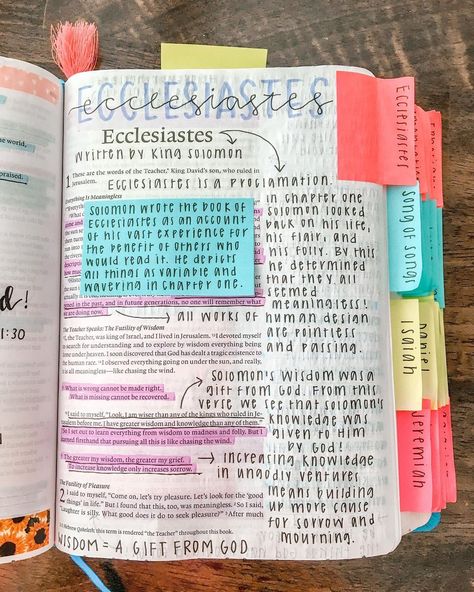 ECCLESIASTES
ecclesiastes
Ecclesiastes
Written by King Solomon
1 These are the words of the Teacher, King David's son, who ruled in
Jerusalem.
Ecclesiastes is a proclamation.
Everything Is Meaningless
Solomon wrote the book of
Ecclesiastes as an account
of his vast experience for
the benefit of others who
would read it. He depicts
all things as variable and
wavering in chapter one.
in chapter one
Solomon looked
back on his life,
his flair, and
his folly. By this
he determined
that they all
seemed
meaningless!
human design
are pointless
and passing.
all works of
in the past, and in future generations, no one will remember what
we are doing now.
The Teacher Speaks: The Futility of Wisdom
I, the Teacher, was king of Israel, and I lived in Jerusalem. I devoted myself
to search for understanding and to explore by wisdom everything being
done under heaven. I soon discovered that God has dealt a tragic existence to
the human race. I observed everything going on under the sun, and really,
it is all meaningless—like chasing the wind.
What is wrong cannot be made right.
What is missing cannot be recovered.
I said to myself, "Look, I am wiser than any of the kings who ruled in Je-
rusalem before me. I have greater wisdom and knowledge than any of them."
So I set out to learn everything from wisdom to madness and folly. But I
learned firsthand that pursuing all this is like chasing the wind.
The greater my wisdom, the greater my grief.
To increase knowledge only increases sorrow.
Solomon's wisdom was a
gift from God. From this
verse we see that Solomon's
knowledge was
given to Him
by God!
increasing knowledge
in ungodly ventures
means building
up more cause
for sorrow and
mourning.
The Futility of Pleasure
2 I said to myself, "Come on, let's try pleasure. Let's look for the 'good
things' in life." But I found that this, too, was meaningless. So I said,
"Laughter is silly. What good does it do to seek pleasure?" After much
Hebrew Qoheleth; this term is rendered "the Teacher" throughout this book.
Wisdom = a gift from God
Ecclesiastes
Song of Songs
Isaiah
Daniel
Jeremiah
the world,
praised.
1:30